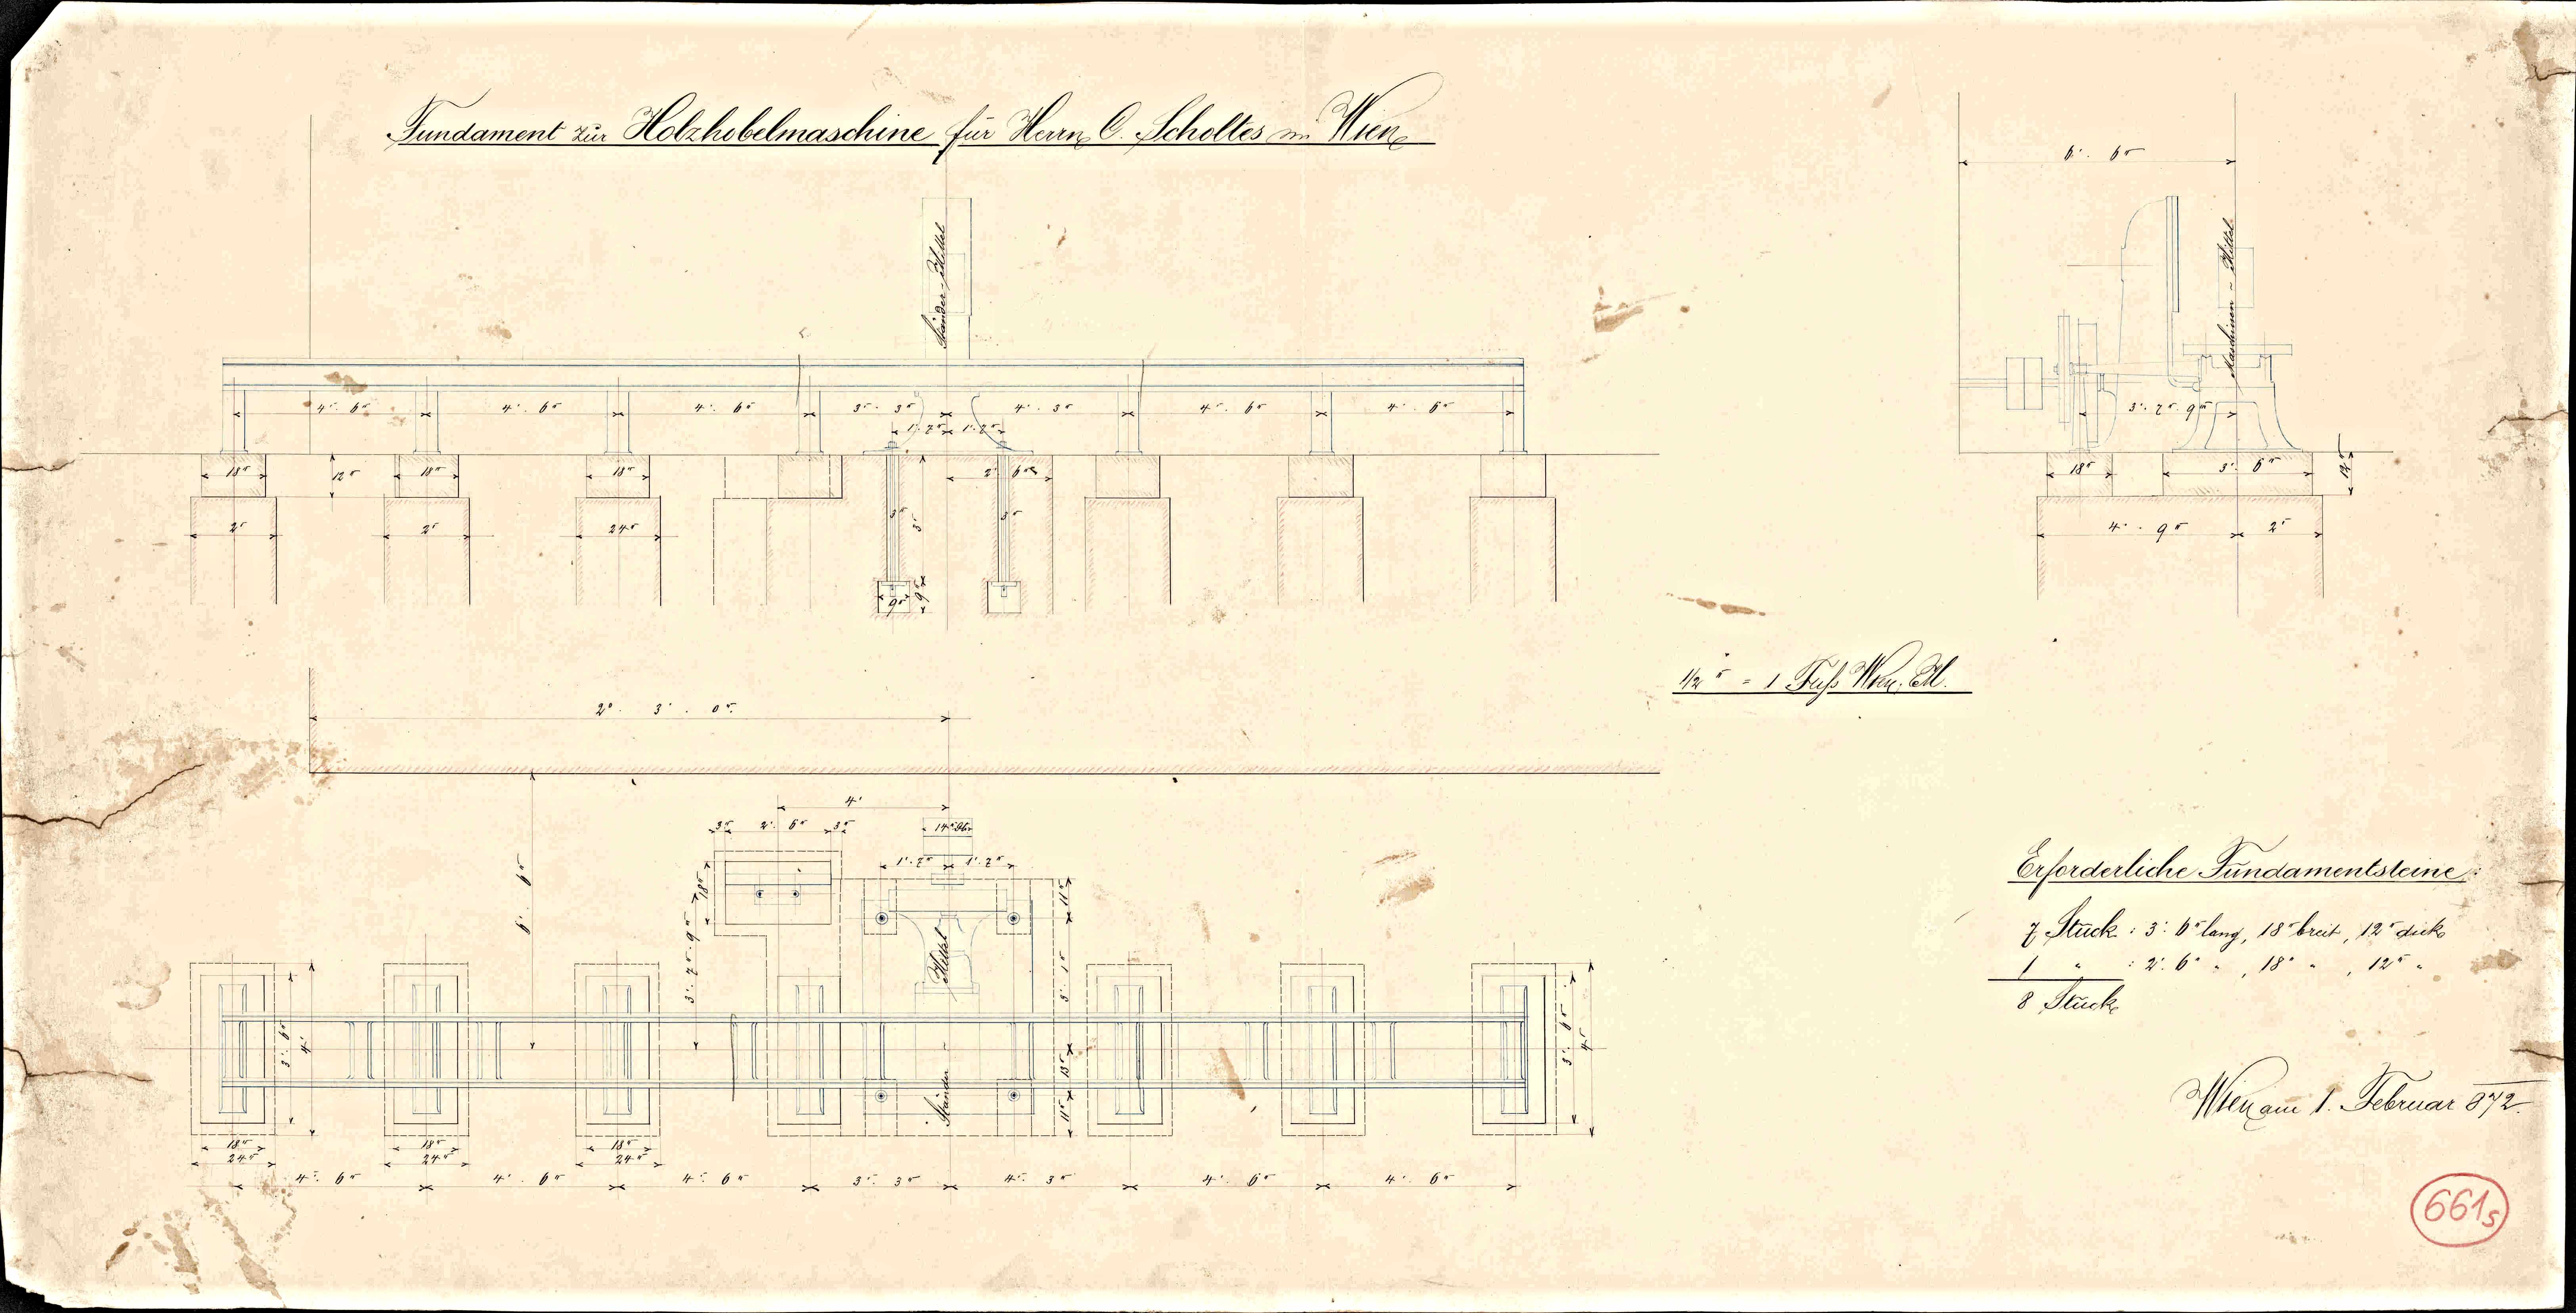 Fundament zur Holzhobelmaschine für Herrn C. Scholtes in Wien
6'. 6"
Ständer-Mittel
Maschinen-Mittel
4'. 6" 4'. 6" 4'. 6" 3'. 3" 4'. 3" 4'. 6" 4'. 6"
1'. 7" 1'. 7"
3'. 7". 9'''
18" 12" 18" 18" 2'. 6"
18" 3'. 6" 12"
2' 2' 24" 3" 3' 3"
4'. 9" 2'
9" 9"
1/2" = 1 Fuß Wien. M.
2°. 3'. 0".
4'
3" 2'. 6" 3" 14"
1'. 7" 1'. 7"
6'. 6"
18"
3'. 7". 9'''
11"
Mittel
3'. 1"
3'. 6" 4'
Ständer
13"
11"
3'. 6" 4'
18" 18" 18"
24" 24" 24"
4'. 6" 4'. 6" 4'. 6" 3'. 3" 4'. 3" 4'. 6" 4'. 6"
Erforderliche Fundamentsteine:
7 Stück: 3'. 6" lang, 18" breit, 12" dick
1 " : 2'. 6" " , 18" " , 12" "
8 Stück
Wien am 1. Februar 872.
661s